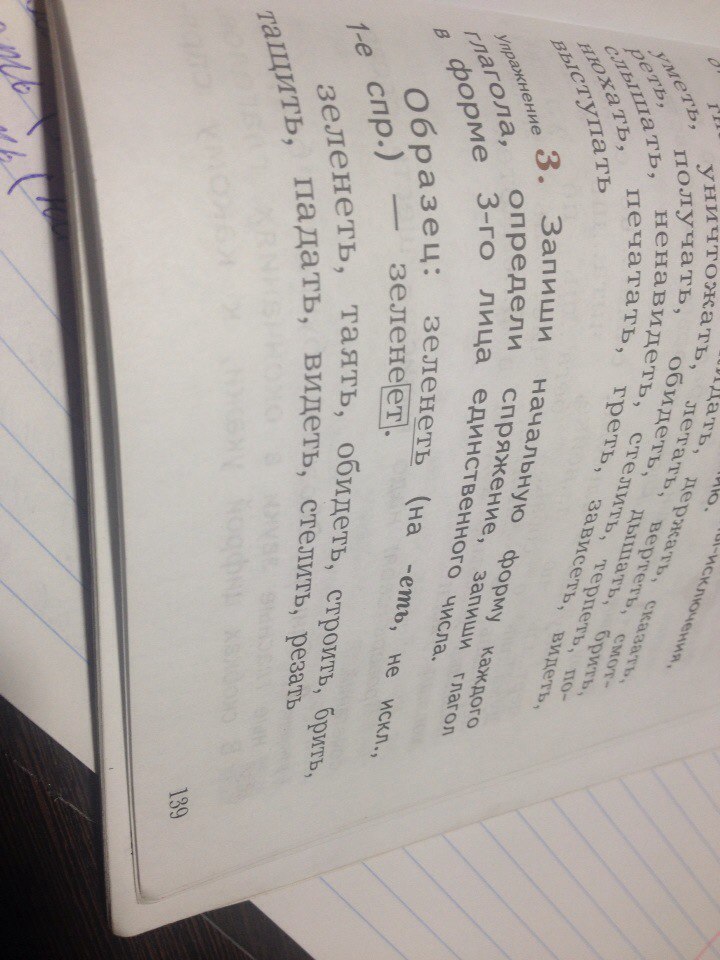 уничтожать, летать, держать,
уметь, получать, обидеть, вертеть, сказать,
реть, ненавидеть, дышать, смот-
слышать, печатать, стелить, терпеть, брить,
нюхать, греть, зависеть, видеть, по-
выступать
упражнение 3. Запиши начальную форму каждого
глагола, определи спряжение, запиши глагол
в форме 3-го лица единственного числа.
Образец: зеленеть (на -еть, не искл.,
1-е спр.) — зеленеет.
зеленеть, таять, обидеть, строить, брить,
тащить, падать, видеть, стелить, резать
139